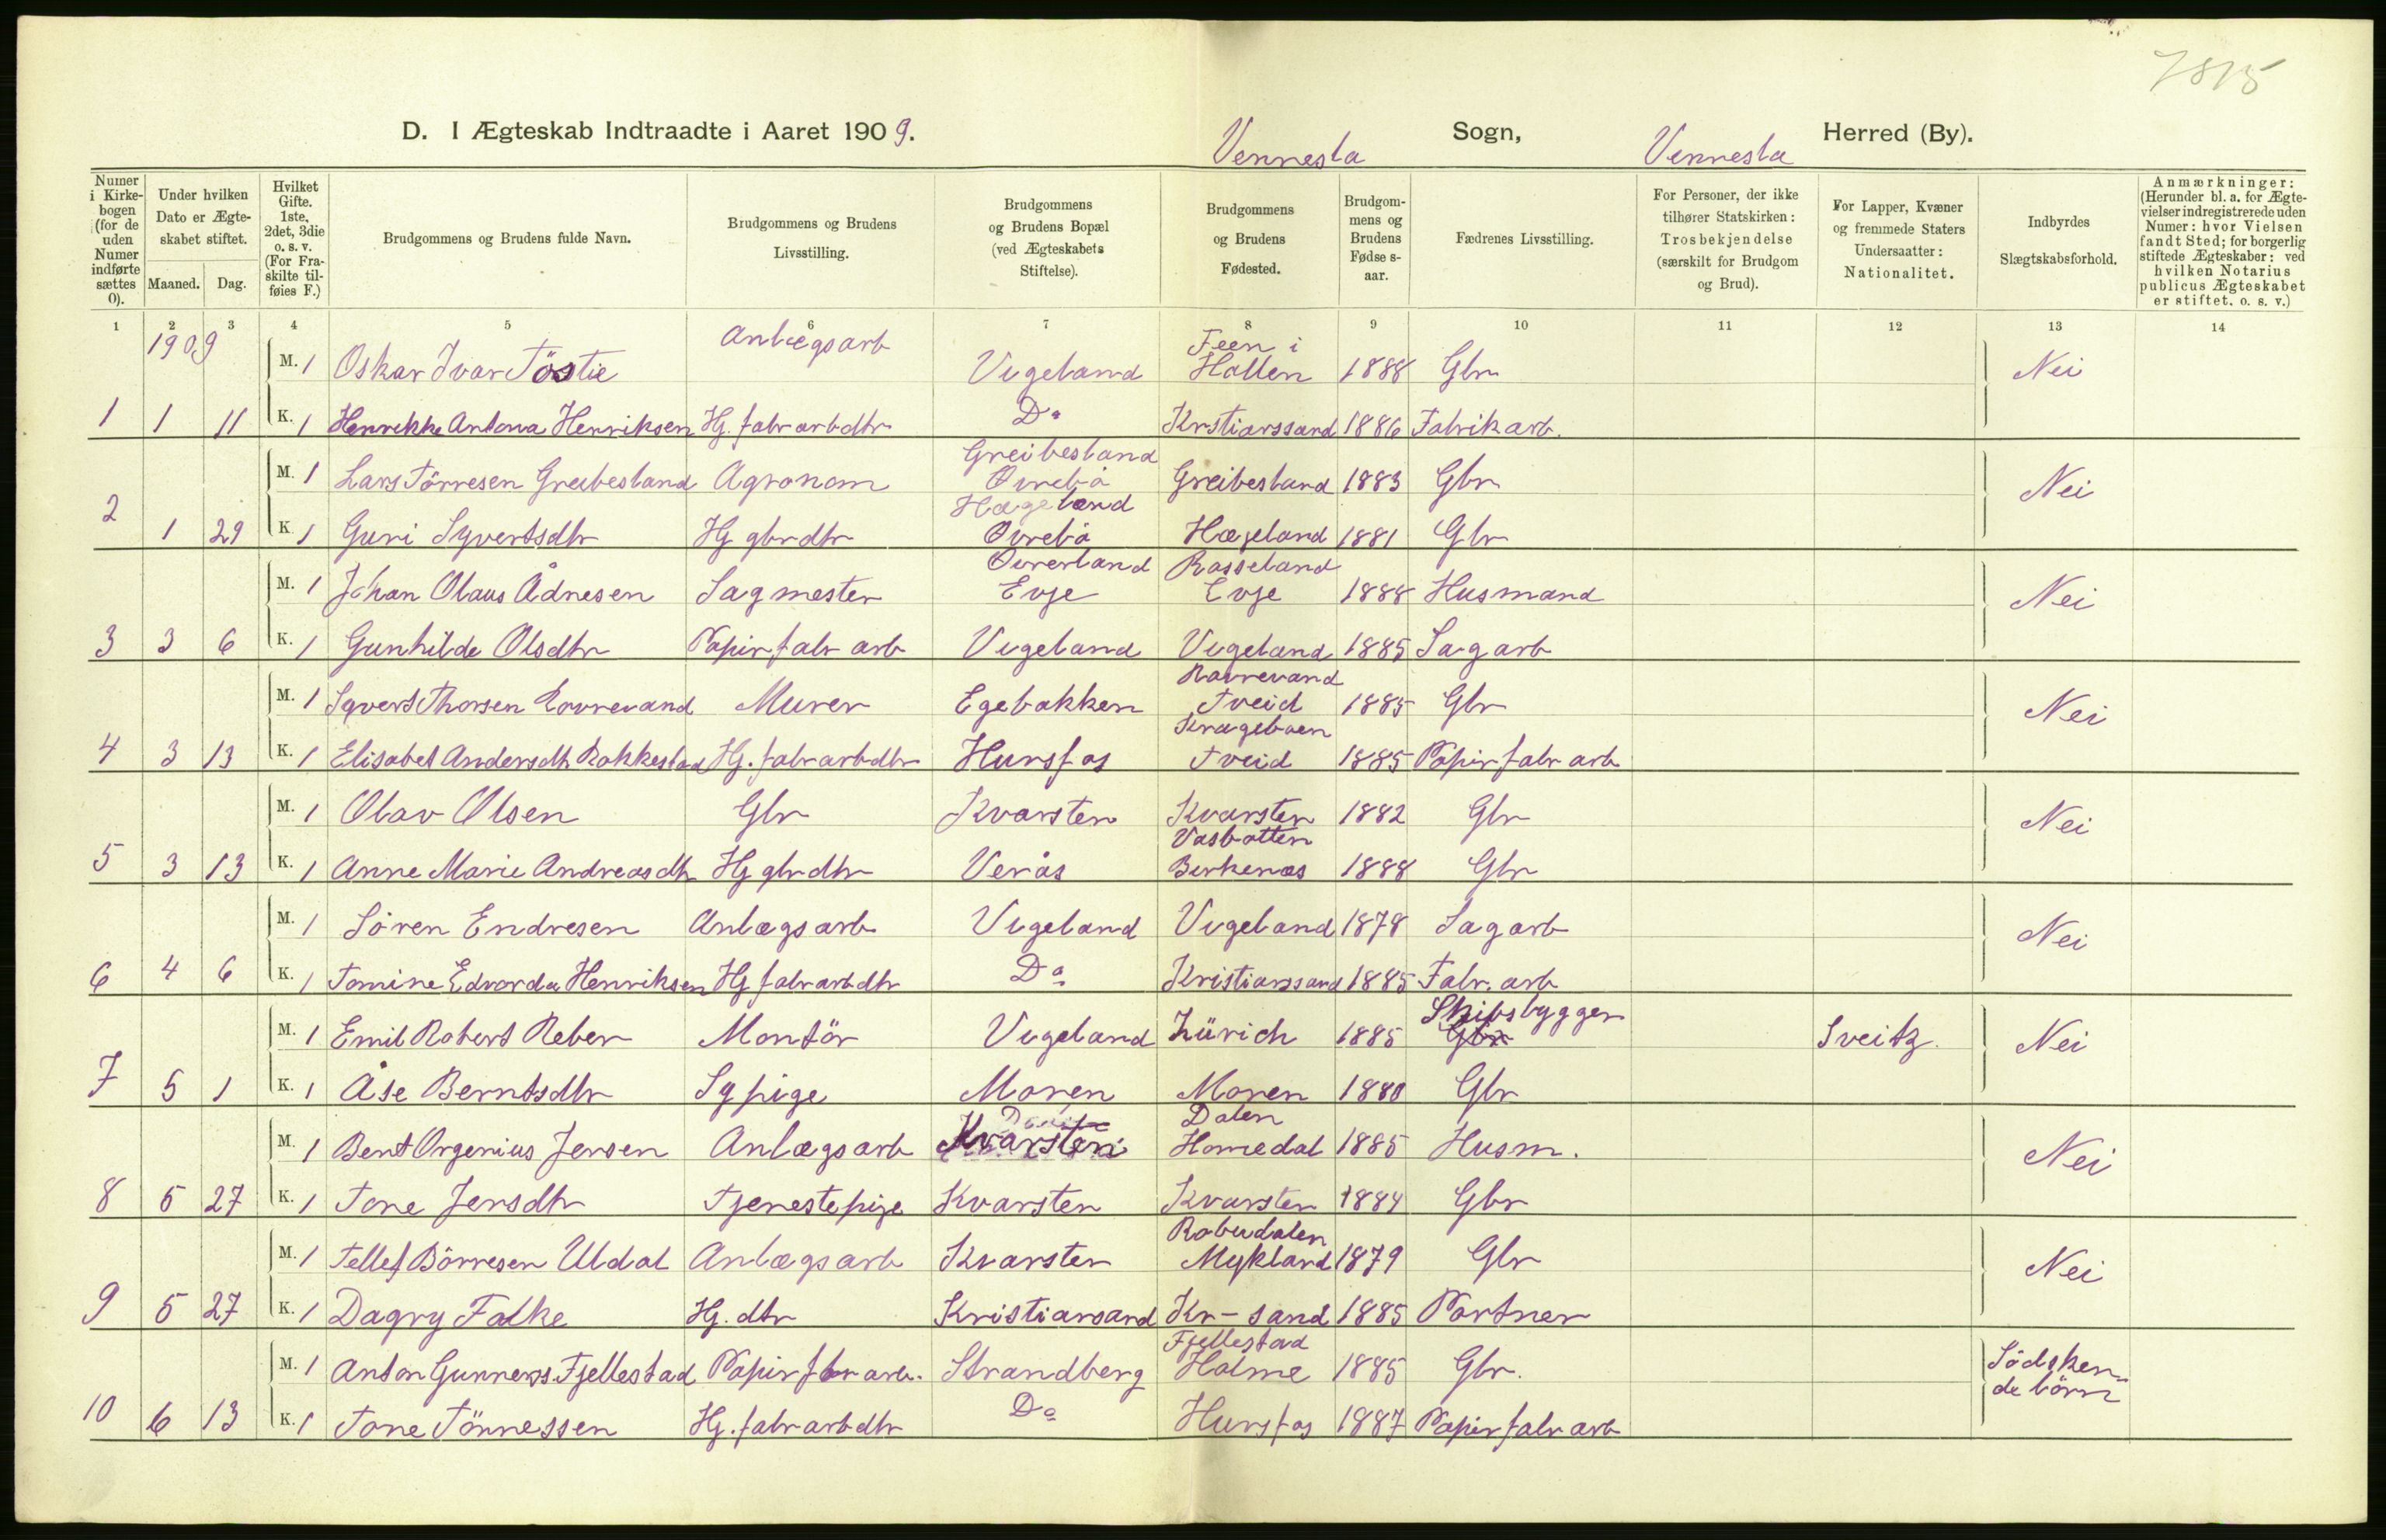 7815
D. I Ægteskab Indtraadte i Aaret 1909. Vennesla Sogn, Vennesla Herred (By).
Numer i Kirkebogen (for de uden Numer indførte sættes 0).
Under hvilken Dato er Ægteskabet stiftet.
Maaned. Dag.
Hvilket Gifte. 1ste, 2det, 3die o. s. v. (For Fraskilte tilføies F.)
Brudgommens og Brudens fulde Navn.
Brudgommens og Brudens Livsstilling.
Brudgommens og Brudens Bopæl (ved Ægteskabets Stiftelse).
Brudgommens og Brudens Fødested.
Brudgommens og Brudens Fødselsaar.
Fædrenes Livsstilling.
For Personer, der ikke tilhører Statskirken: Trosbekjendelse (særskilt for Brudgom og Brud).
For Lapper, Kvæner og fremmede Staters Undersaatter: Nationalitet.
Indbyrdes Slægtskabsforhold.
Anmærkninger: (Herunder bl. a. for Ægtevielser indregistrerede uden Numer: hvor Vielsen fandt Sted; for borgerlig stiftede Ægteskaber: ved hvilken Notarius publicus Ægteskabet er stiftet. o. s. v.)
1 2 3 4 5 6 7 8 9 10 11 12 13 14
1909
M. 1 Oskar Ivar Töstie Anlægsarb Vigeland Feen i Hollen 1888 Gbr Nei
1 1 11 K. 1 Henrikke Antona Henriksen Hj. fabrarbdtr Do Krstianssand 1886 Fabrikarb.
M. 1 Lars Törresen Greibesland Agronom Greibesland Övrebö Greibesland 1883 Gbr Nei
2 1 29 K 1 Guri Syvertsdtr Hj gbrdtr Hægeland Övrebö Hægeland 1881 Gbr
M. 1 Johan Olaus Ådnesen Sagmester Övverland Evje Rasseland Evje 1888 Husmand Nei
3 3 6 K. 1 Gunhilde Olsdtr Papirfabr arb Vigeland Vigeland 1885 Sagarb
M. 1 Syvert Thorsen Rovrevand Murer Egebakken Ravnevand Tveid 1885 Gbr Nei
4 3 13 K. 1 Elisabet Andersdtr Rokkestad Hj. fabrarbdtr Hunsfos Krageboen Tveid 1885 Papirfabr arb
M. 1 Olav Olsen Gbr Kvarsten Kvarsten 1882 Gbr Nei
5 3 13 K. 1 Anne Marie Andreasdtr Hj gbrdtr Verås Vasbotten Birkenæs 1888 Gbr
M. 1 Sören Endresen Anlægsarb Vigeland Vigeland 1878 Sagarb Nei
6 4 6 K. 1 Tomine Edvarda Henriksen Hj fabrarbdtr Do Kristianssand 1885 Fabr. arb
M. 1 Emil Robert Reber Montör Vigeland Zürich 1885 Skibsbygger Gbr Sveitz. Nei
7 5 1 K. 1 Åse Berntsdtr Sypige Moren Moren 1880 Gbr
M. 1 Bent Orgenius Jensen Anlægsarb Kvarsten Dalen Homedal 1885 Husm. Nei
8 5 27 K. 1 Tone Jensdtr Tjenestepige Kvarsten Kvarsten 1884 Gbr
M. 1 Tellef Börresen Uldal Anlægsarb Kvarsten Robudalen Mykland 1879 Gbr Nei
9 5 27 K. 1 Dagny Falke Hj. dtr Kristiansand Kr-sand 1885 Portner
M. 1 Anton Gunners. Fjellestad Papirfbrarb. Strandberg Fjellestad Holme 1885 Gbr. Södskendebörn
10 6 13 K. 1 Tone Tönnessen Hj. fabrarbdtr Do Hunsfos 1887 Papirfabr arb